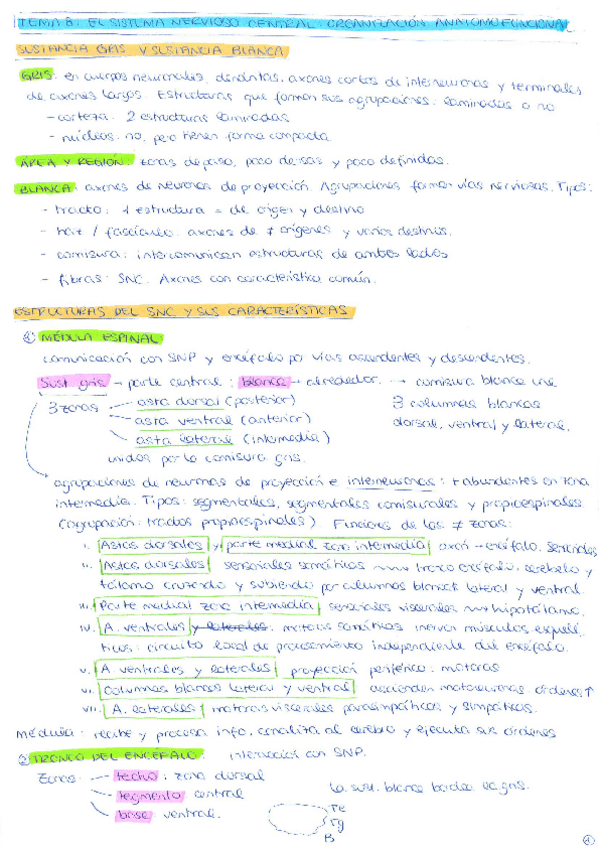 TEMA 8: EL SISTEMA NERVIOSO CENTRAL: ORGANIZACIÓN ANATOMOFUNCIONAL
SUSTANCIA GRIS Y SUSTANCIA BLANCA
GRIS: en cuerpos neuronales, dendritas, axones cortos de interneuronas y terminales
de axones largos. Estructuras que forman sus agrupaciones: laminadas o no
- corteza: 2 estructuras laminadas
- núcleos: no, pero tienen forma compacta
ÁREA Y REGIÓN: zonas de paso, poco densas y poco definidas.
BLANCA: axones de neuronas de proyección. Agrupaciones forman vías nerviosas. Tipos:
- tracto: 1 estructura = de origen y destino
- haz / fascículo: axones de ≠ orígenes y varios destinos.
- comisura: intercomunican estructuras de ambos lados
- fibras: SNC. Axones con característica común.
ESTRUCTURAS DEL SNC Y SUS CARACTERÍSTICAS
① MÉDULA ESPINAL:
comunicación con SNP y encéfalo por vías ascendentes y descendentes.
Sust. gris → parte central; blanca → alrededor. → comisura blanca une
3 zonas asta dorsal (posterior) 3 columnas blancas
asta ventral (anterior) dorsal, ventral y lateral.
asta lateral (intermedia)
unidos por la comisura gris.
agrupaciones de neuronas de proyección e interneuronas: + abundantes en zona
intermedia. Tipos: segmentales, segmentales comisurales y propioespinales
(agrupación: tractos propioespinales) Funciones de las ≠ zonas:
i. Astas dorsales y parte medial zona intermedia axón → encéfalo. sensoriales
ii. Astas dorsales sensoriales somáticas tronco encéfalo, cerebelo y
tálamo cruzando y subiendo por columnas blancas lateral y ventral.
iii. Parte medial zona intermedia sensoriales viscerales hipotálamo.
iv. A. ventrales y laterales: motoras somáticas inervar músculos esquelé
ticos: circuito local de procesamiento independiente del encéfalo.
v. A. ventrales y laterales proyección periférica: motoras
vi. Columnas blancas lateral y ventral ascienden motoneuronas. órdenes ↑
vii. A. laterales motoras viscerales parasimpáticas y simpáticas.
Médula: recibe y procesa info, canaliza al cerebro y ejecuta sus órdenes
② TRONCO DEL ENCÉFALO: interacción con SNP.
Zonas: techo: zona dorsal
tegmento central la sust. blanca bordea la gris.
base ventral. Te
Tg
B
①